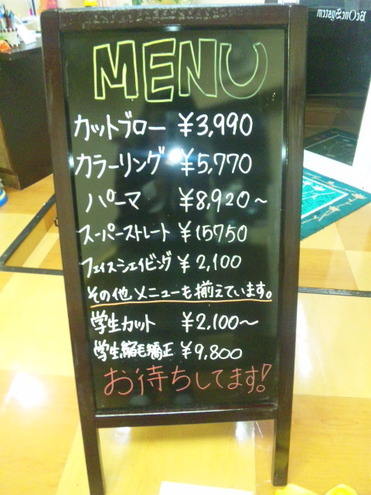 MENU
カットブロー ¥3,990
カラーリング ¥5,770
パーマ ¥8,920～
スーパーストレート ¥15750
フェイスシェイビング ¥2,100
その他メニューも揃えています。
学生カット ¥2,100～
学生縮毛矯正 ¥9,800
お待ちしてます!